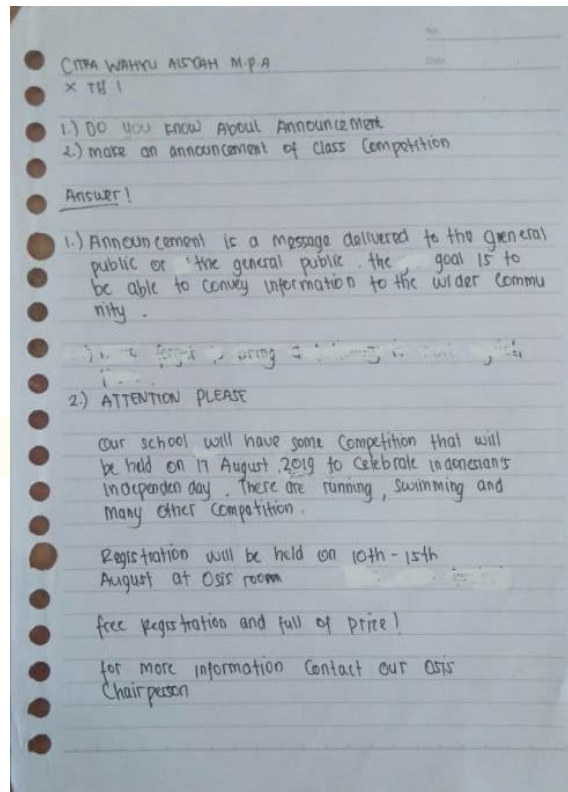 No.
Date
CITRA WAHYU AISYAH M.P.A
X TH 1
1.) DO you know About Announcement
2.) make an announcement of class Competition
Answer!
1.) Announcement is a message delivered to the general
public or the general public . the goal is to
be able to convey information to the wider commu
nity .
2.) ATTENTION PLEASE
our school will have some Competition that will
be held on 17 August 2019 to Celebrate indonesian's
independen day . There are running , swimming and
many other Competition .
Registration will be held on 10th - 15th
August at Osis room
free Registration and full of prize!
for more information Contact our Osis
Chairperson